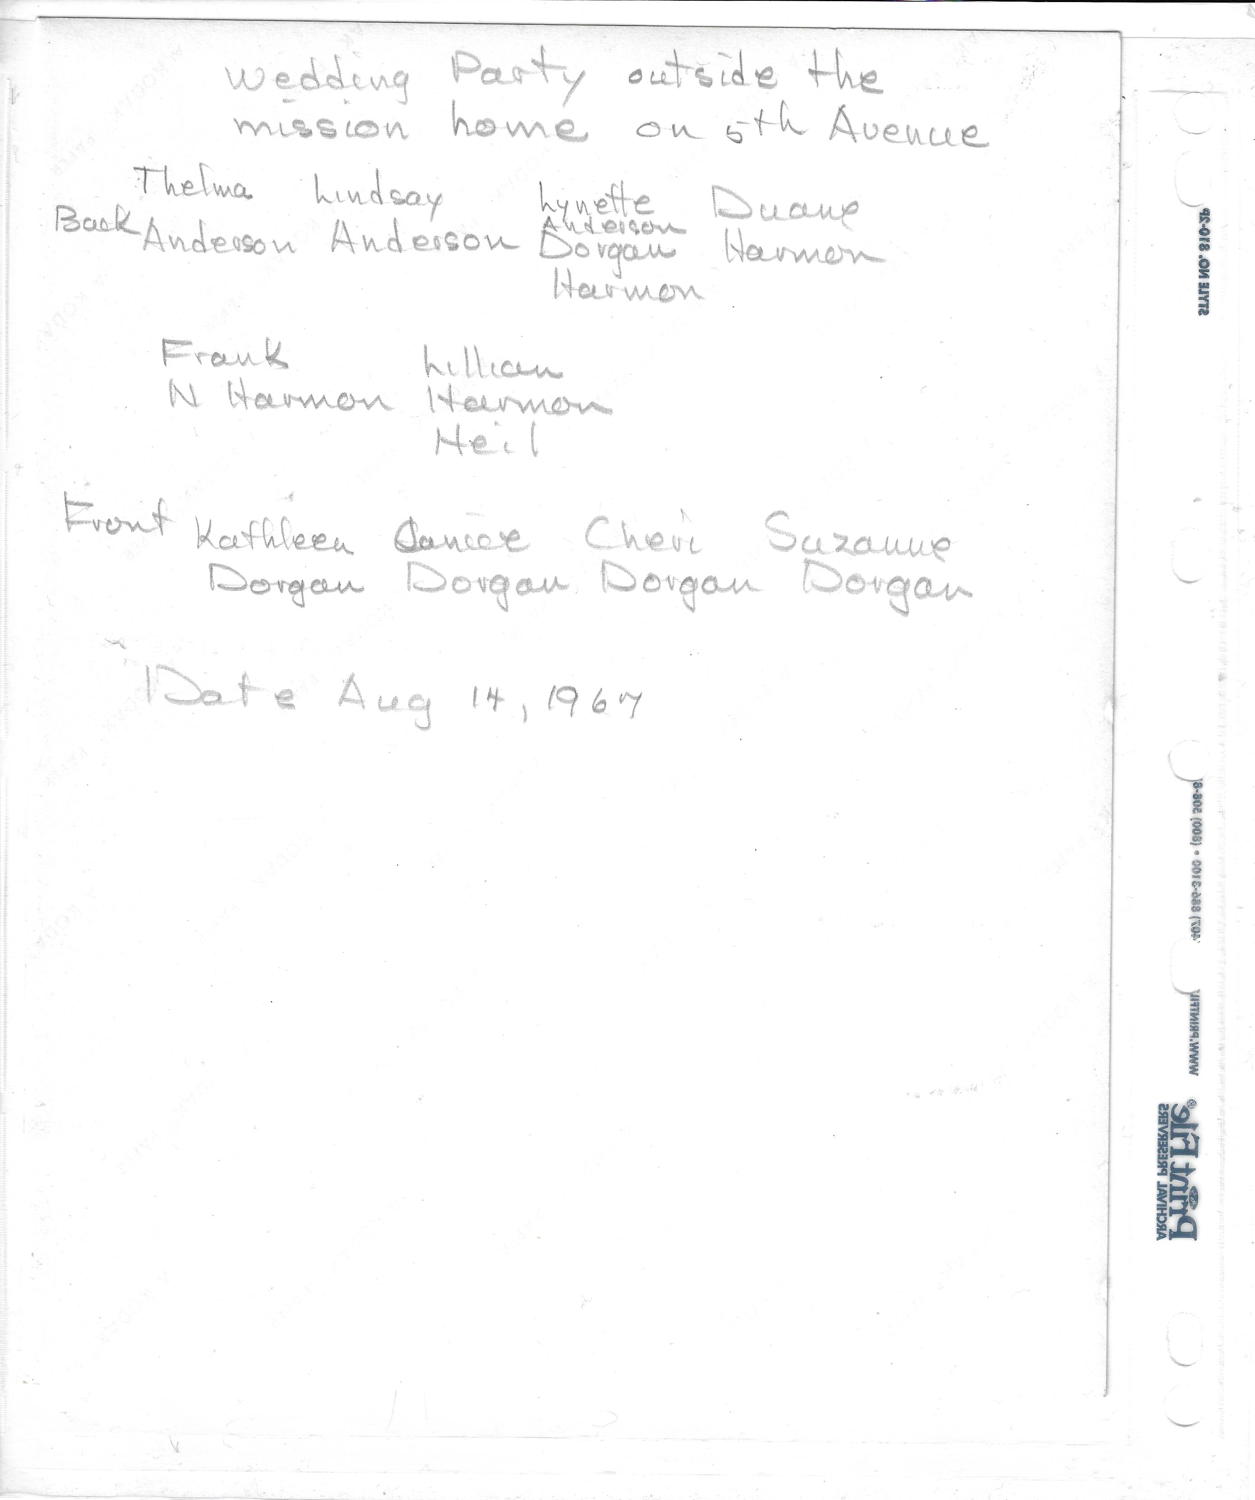 Wedding Party outside the
mission home on 5th Avenue
Thelma Lindsay Lynette Duane
Back Anderson Anderson Anderson
Dorgan Harmon
Harmon
Frank Lillian
N Harmon Harmon
Heil
Front Kathleen Janice Cheri Suzanne
Dorgan Dorgan Dorgan Dorgan
Date Aug 14, 1967
STYLE NO. 810-2P
WWW.PRINTFIL
ARCHIVAL PRESERVERS
Print File®